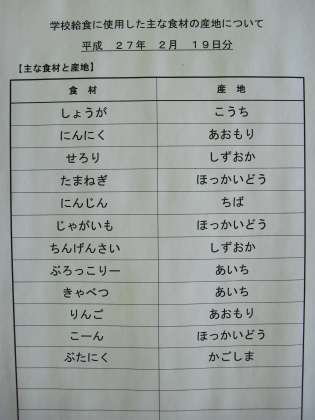 学校給食に使用した主な食材の産地について
平成 27年 2月 19日分
【主な食材と産地】
食 材 産 地
しょうが こうち
にんにく あおもり
せろり しずおか
たまねぎ ほっかいどう
にんじん ちば
じゃがいも ほっかいどう
ちんげんさい しずおか
ぶろっこりー あいち
きゃべつ あいち
りんご あおもり
こーん ほっかいどう
ぶたにく かごしま